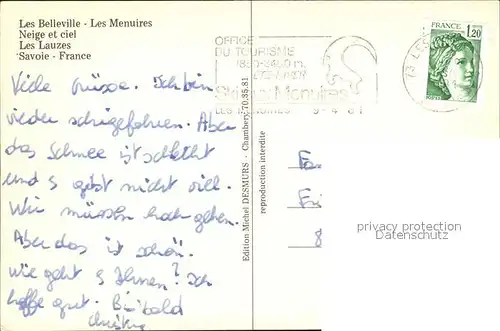 Les Belleville - Les Menuires
Neige et ciel
Les Lauzes
Savoie - France
OFFICE
DU TOURISME
1850-3400 m.
ETE-HIVER
Ski Menuires
LES MENUIRES 9-4 81
73 LES
FRANCE
1,20
Viele Grüsse. Ich bin
wieder schigefahren. Aber
das Schnee ist schlecht
und s gibt nicht viel.
Wir müssen hoch gehen.
Aber das ist schön.
Wie geht s Ihnen? Ich
hoffe gut. Bis bald
Edition Michel DESMURS - Chambery. 70.35.81
reproduction interdite
Fa
Fri
8
privacy protection
Datenschutz